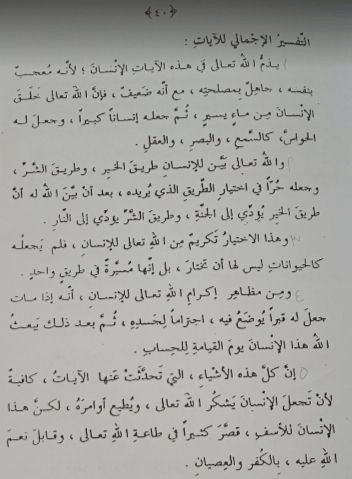 ﴿٤٠﴾
التَّفسيرُ الإجْمالي للآيَاتِ :
يذمُّ الله تعالى في هذه الآياتِ الإنْسانَ ؛ لأنَّه مُعجبٌ
بنفسه ، جاهلٌ بمصلحتِه ، مع أنَّه ضَعيفٌ ، فإنَّ اللهَ تعالى خَلَقَ
الإنْسانَ مِن ماءٍ يسيرٍ ، ثُمَّ جعلَه إنساناً كبيراً ، وجعلَ لـه
الحواسَّ، كالسَّمعِ ، والبصرِ ، والعقلِ .
واللهُ تعالى بيَّن للإنسانِ طريقَ الخيرِ ، وطريقَ الشَّرِّ ،
وجعله حُرّاً في اختيارِ الطَّريقِ الذي يُريده ، بعد أنْ بيَّنَ اللهُ له أنَّ
طريقَ الخيرِ يُؤدِّي إلى الجنَّةِ ، وطريقَ الشَّرِّ يؤدِّي إلى النَّارِ .
وهذا الاختيارُ تكريمٌ مِن اللهِ تعالى للإنسانِ، فلم يَجعلْـه
كالحيواناتِ ليس لها أنْ تختارَ ، بل إنَّها مُسيَّرةٌ في طريقٍ واحدٍ .
ومِن مظاهرِ إكرامِ اللهِ تعالى للإنسانِ ، أنَّه إذا مـات
جعلَ له قبراً يُوضَعُ فيه ، احتِراماً لِجَسدِه ، ثُمَّ بعد ذلـك يَبعثُ
اللهُ هذا الإنْسانَ يومَ القيامةِ لِلحِسابِ .
إنَّ كلَّ هذه الأشْياءِ ، التي تَحدَّثَتْ عَنها الآياتُ ، كافيـةٌ
لأنْ تَجعلَ الإنْسانَ يَشكُر اللهَ تعالى ، ويُطيع أوامرَهُ ، لكنَّ هذا
الإنْسانَ للأسفِ ، قصَّرَ كثيراً في طاعةِ اللهِ تعالى ، وقـابلَ نعـمَ
اللهِ عليه ، بالكُفرِ والعِصيانِ .